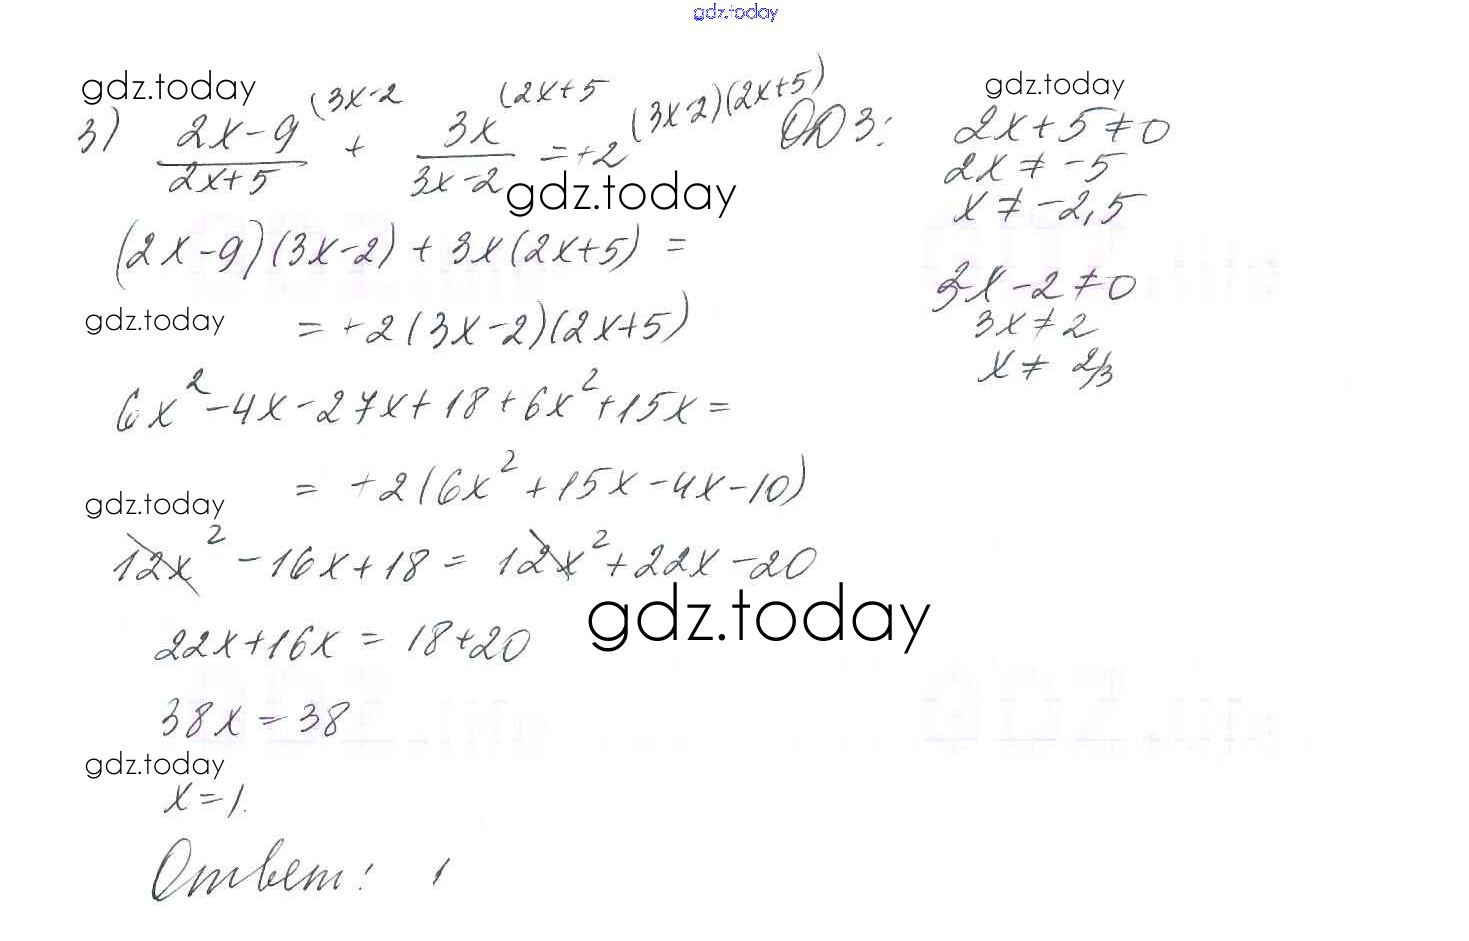 gdz.today
gdz.today
gdz.today
3) (2x-9)/(2x+5) (3x-2 + 3x/(3x-2) (2x+5 = +2 (3x-2)(2x+5) ОДЗ: 2x+5≠0
2x ≠ -5
gdz.today
x ≠ -2,5
(2x-9)(3x-2)+3x(2x+5) =
3x-2≠0
gdz.today
= +2(3x-2)(2x+5)
3x≠2
x≠ 2/3
6x²-4x-27x+18+6x²+15x=
= +2(6x²+15x-4x-10)
gdz.today
12x²-16x+18= 12x²+22x-20
gdz.today
22x+16x = 18+20
38x=38
gdz.today
x=1.
Ответ: 1